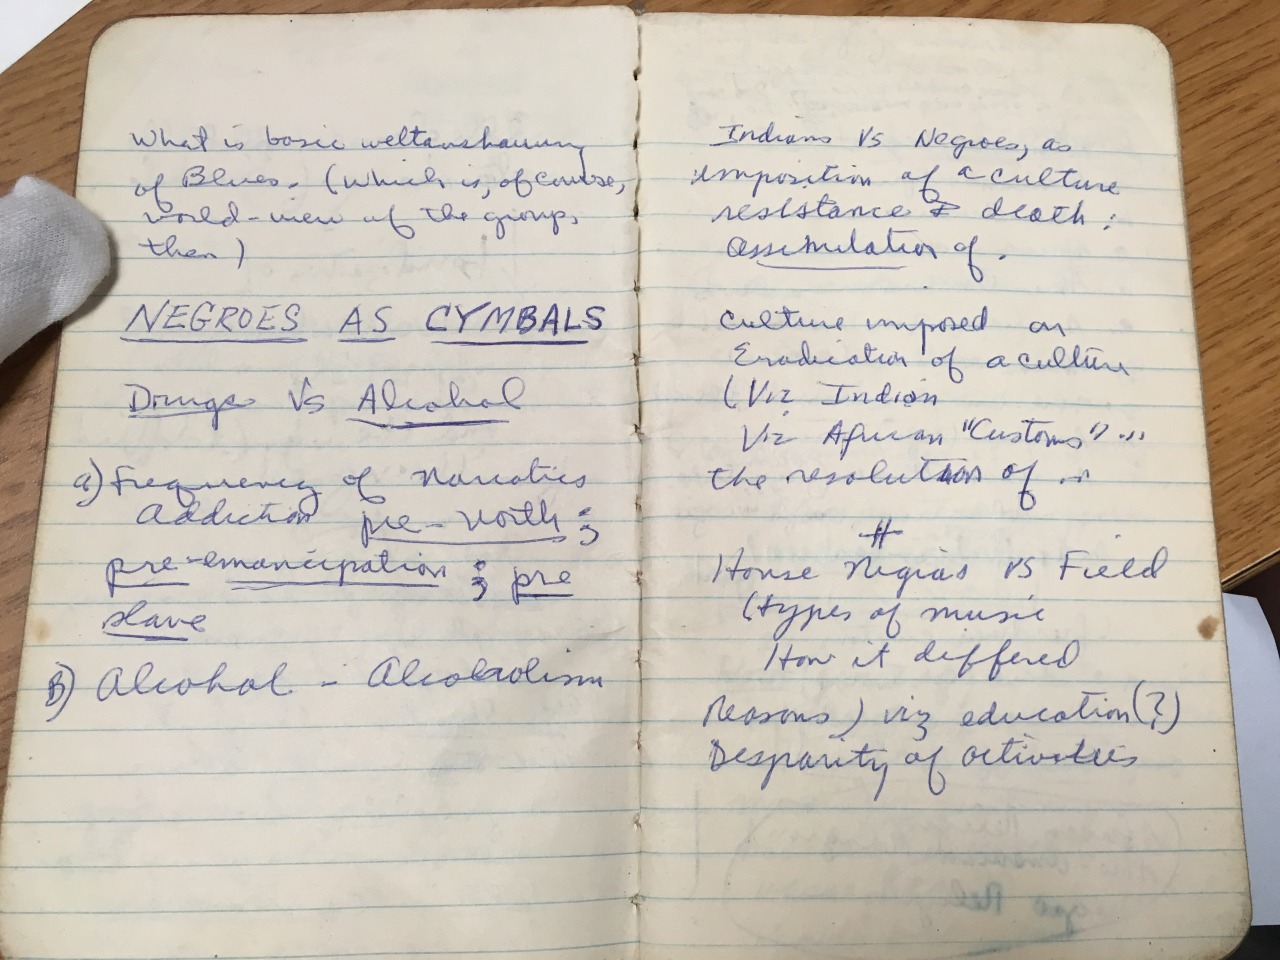 What is basic weltanshauung
of Blues. (Which is, of course,
world-view of the group,
then)
NEGROES AS CYMBALS
Drugs VS Alcohol
a) Frequency of Narcotics
Addiction pre-North;
pre-emancipation; pre
slave
B) Alcohol - Alcoholism
Indians VS Negroes, as
imposition of a culture
resistance & death:
assimilation of.
Culture imposed on
Eradication of a culture
(Viz Indian
Viz African "Customs"...
the resolution of ...
#
House Negroes VS Field
(types of music
How it differed
Reasons) viz education(?)
Desparity of activities